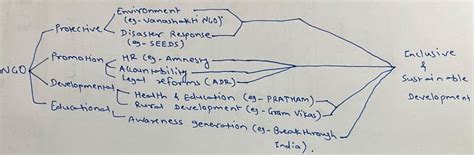 Environment
(eg- Vanashakti NGO)
Protective
Disaster Response
(eg- SEEDS)
HR (eg- Amnesty
Promotion
Accountability
Legal reforms (ADR)
NGO
Inclusive
&
Sustainable
Development
Developmental
Health & Education (eg- PRATHAM)
Rural Development (eg- Gram Vikas)
Educational
Awareness generation (eg- Breakthrough
India).